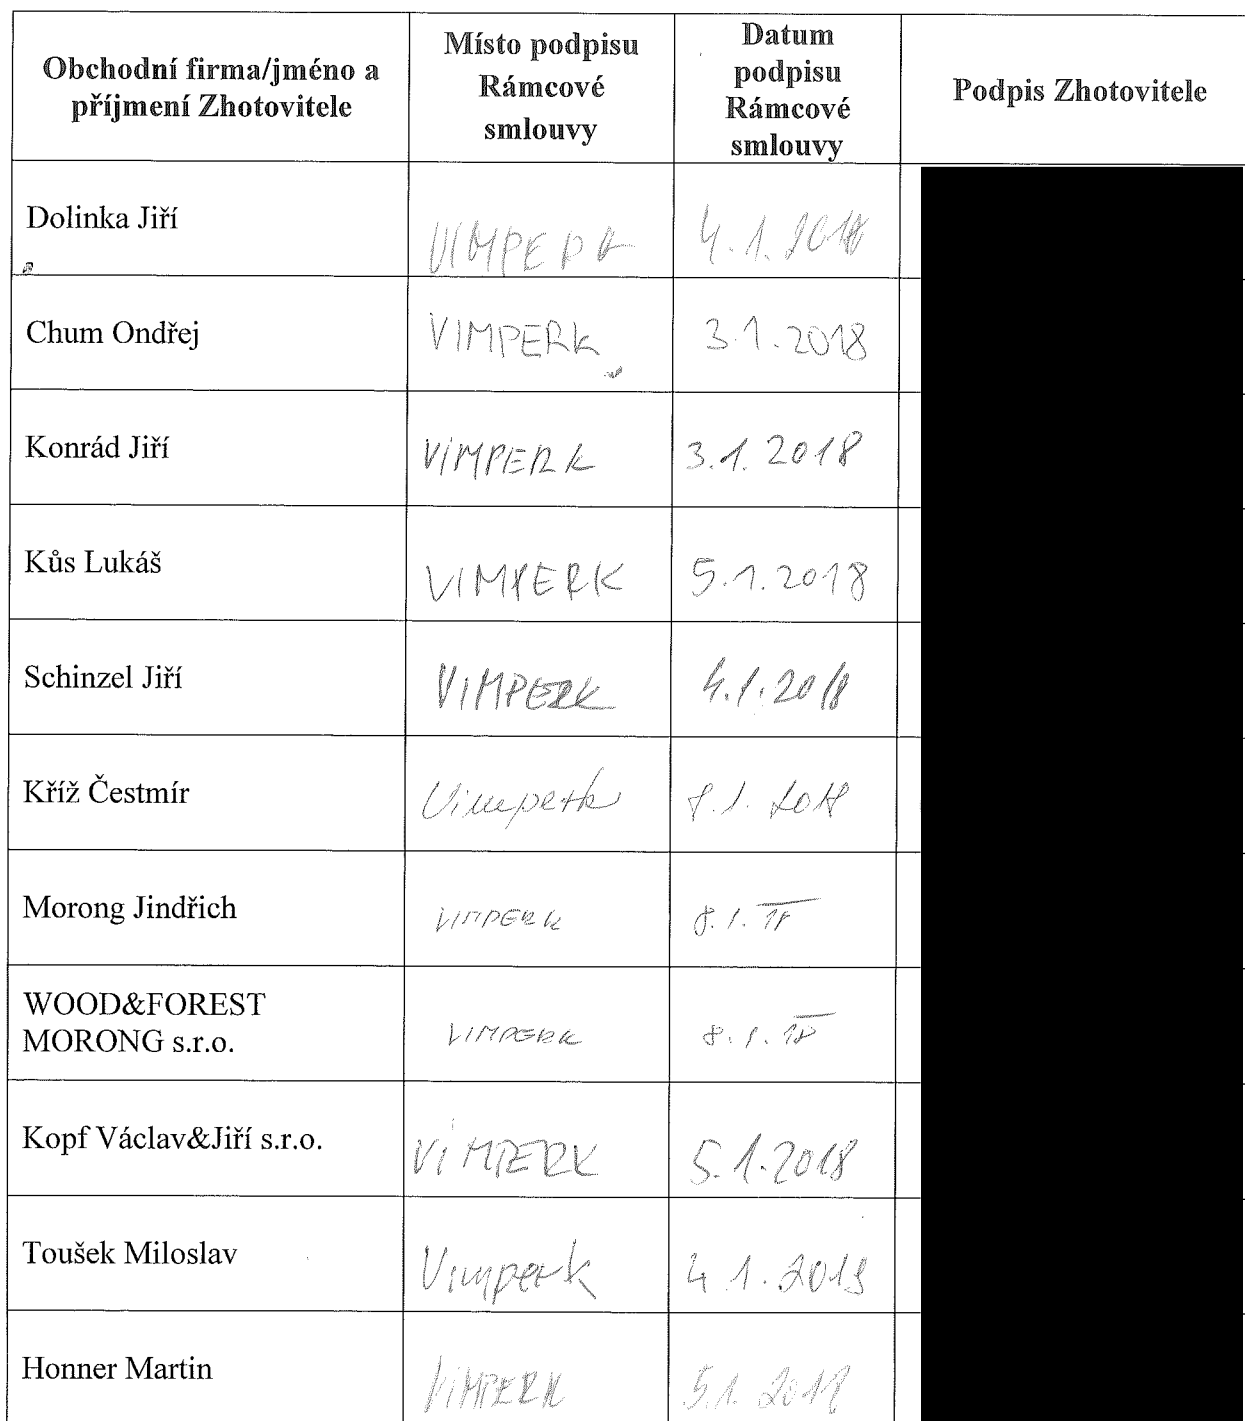 Obchodní firma/jméno a
příjmení Zhotovitele
Místo podpisu
Rámcové
smlouvy
Datum
podpisu
Rámcové
smlouvy
Podpis Zhotovitele
Dolinka Jiří
VIMPERK
4.1.2018
Chum Ondřej
VIMPERK
3.1.2018
Konrád Jiří
VIMPERK
3.1.2018
Kůs Lukáš
VIMPERK
5.1.2018
Schinzel Jiří
VIMPERK
4.1.2018
Kříž Čestmír
Vimperk
8.1.2018
Morong Jindřich
VIMPERK
8.1.18
WOOD&FOREST
MORONG s.r.o.
VIMPERK
8.1.18
Kopf Václav&Jiří s.r.o.
VIMPERK
5.1.2018
Toušek Miloslav
Vimperk
4.1.2018
Honner Martin
VIMPERK
5.1.2018